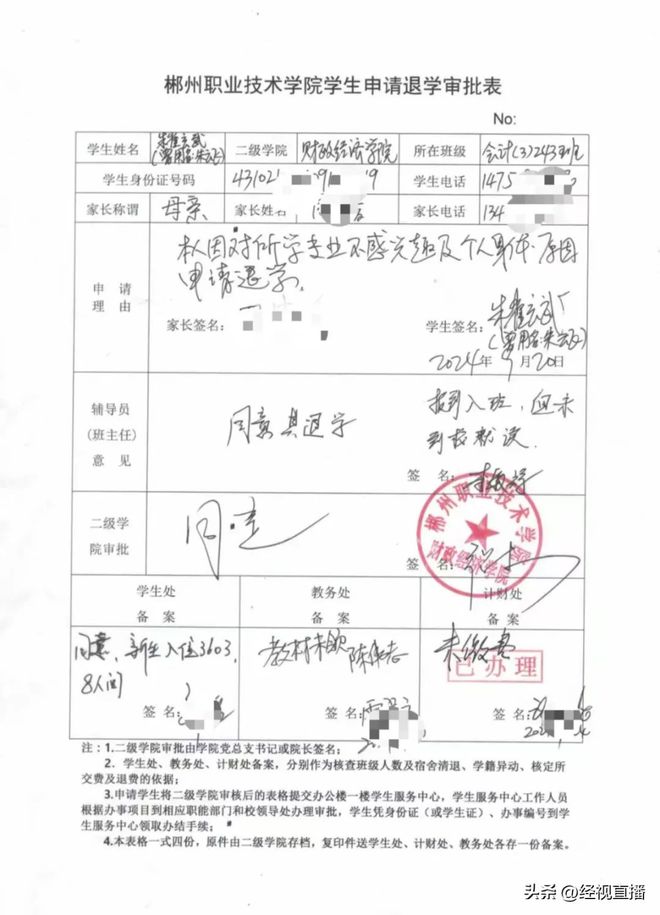 郴州职业技术学院学生申请退学审批表
No:
学生姓名 朱雀玄武 (曾用名:朱云飞) 二级学院 财政经济学院 所在班级 会计(3)243班
学生身份证号码 43102 9 9 学生电话 1475
家长称谓 母亲 家长姓名 家长电话 134
申请理由 本人因对所学专业不感兴趣及个人身体原因
申请退学。
家长签名: 学生签名: 朱雀玄武
(曾用名:朱云飞)
2024年9月20日
辅导员(班主任)意见 同意其退学 报到入班,但未
到校就读.
签 名:
二级学院审批 同意
签 名:
郴州职业技术学院
财政经济学院
学生处备案 教务处备案 计财处备案
同意,新生入住3603, 教材未领 未缴费
8人间 已办理
签 名: 签 名: 签 名:
注:1.二级学院审批由学院党总支书记或院长签名;
2.学生处、教务处、计财处备案,分别作为核查班级人数及宿舍清退、学籍异动、核定所
交费及退费的依据;
3.申请学生将二级学院审核后的表格提交办公楼一楼学生服务中心,学生服务中心工作人员
根据办事项目到相应职能部门和校领导处办理审批,学生凭身份证(或学生证)、办事编号到学
生服务中心领取办结手续;
4.本表格一式四份,原件由二级学院存档,复印件送学生处、计财处、教务处各存一份备案。
头条 @经视直播